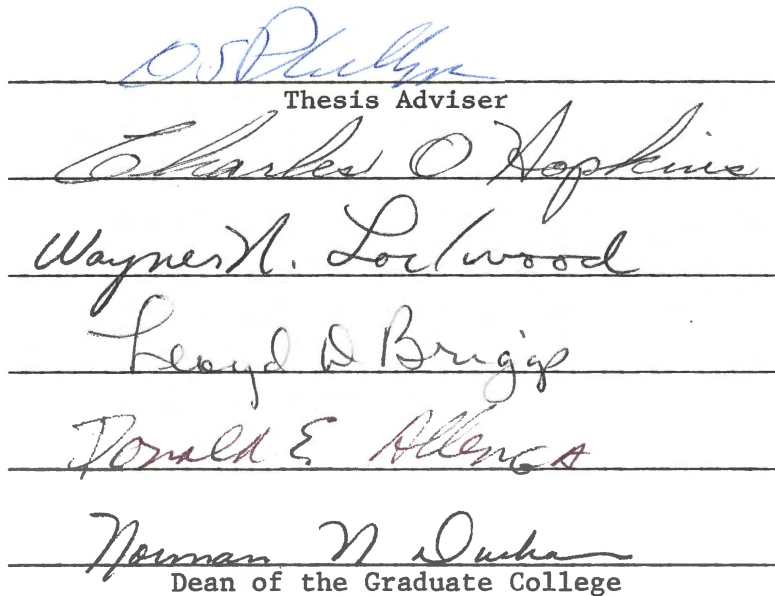 D S Phillips
Thesis Adviser
Charles O Hopkins
Wayne N. Lockwood
Lloyd D Briggs
Donald E Allen
Norman N Durham
Dean of the Graduate College